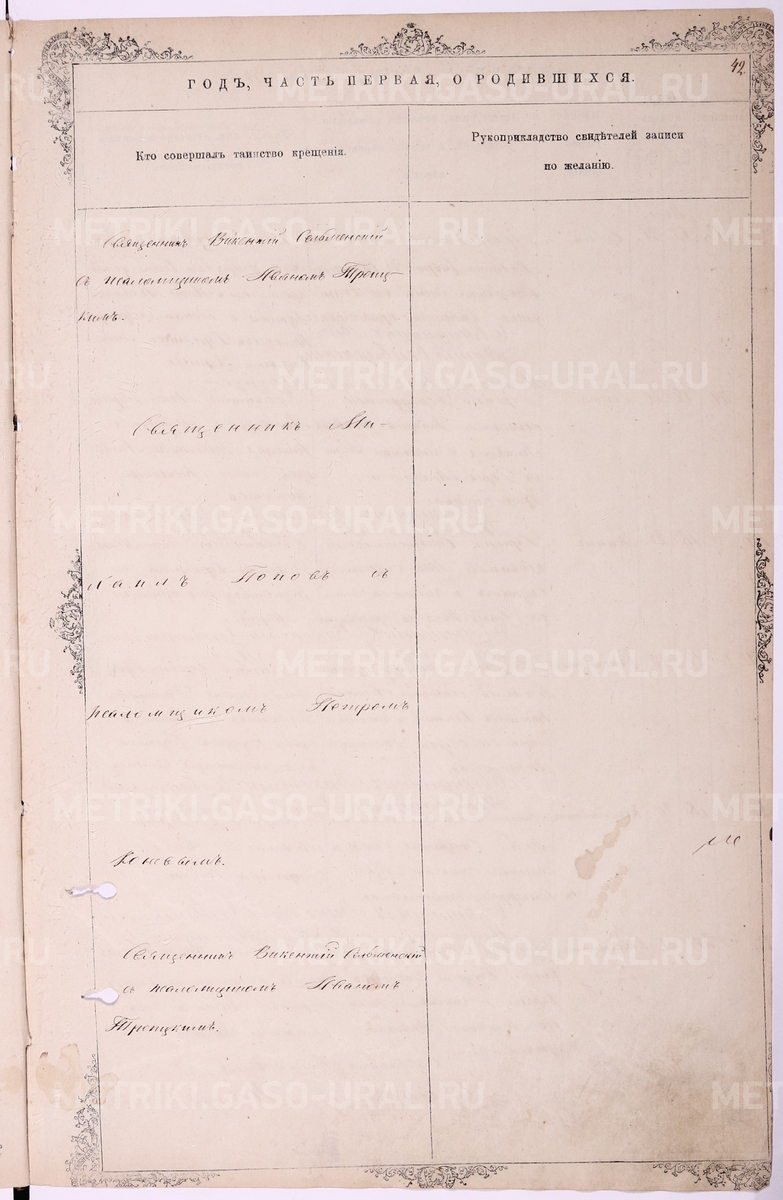 42
ГОДЪ, ЧАСТЬ ПЕРВАЯ, О РОДИВШИХСЯ.
Кто совершалъ таинство крещенія.
Рукоприкладство свидѣтелей записи
по желанію.
Священникъ Викентій
съ псаломщикомъ Иваномъ Троиц-
кимъ.
Священникъ Ми-
хаилъ Поповъ съ
псаломщикомъ Петромъ
Коневымъ.
Священникъ Викентій
съ псаломщикомъ Иваномъ
Троицкимъ.
METRIKI.GASO-URAL.RU